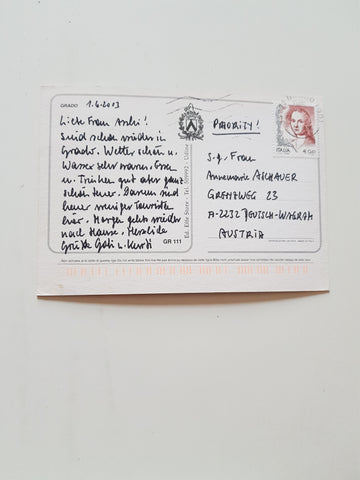 GRADO 1.6.2003
Liebe Frau Aschi!
Sind schon wieder in
Grado. Wetter schön u.
Wasser sehr warm. Essen
u. Trinken gut aber ganz
schön teuer. Darum sind
heuer weniger Touristen
hier. Morgen gehts wieder
nach Hause. Herzliche
Grüße Gabi u. Kurti
GR 111
Ed. Elite Store - Tel. 509992 - Udine
PRIORITY!
ITALIA
S.g. Frau
Annemarie ASCHAUER
GRENZWEG 23
A-2232 DEUTSCH-WAGRAM
AUSTRIA